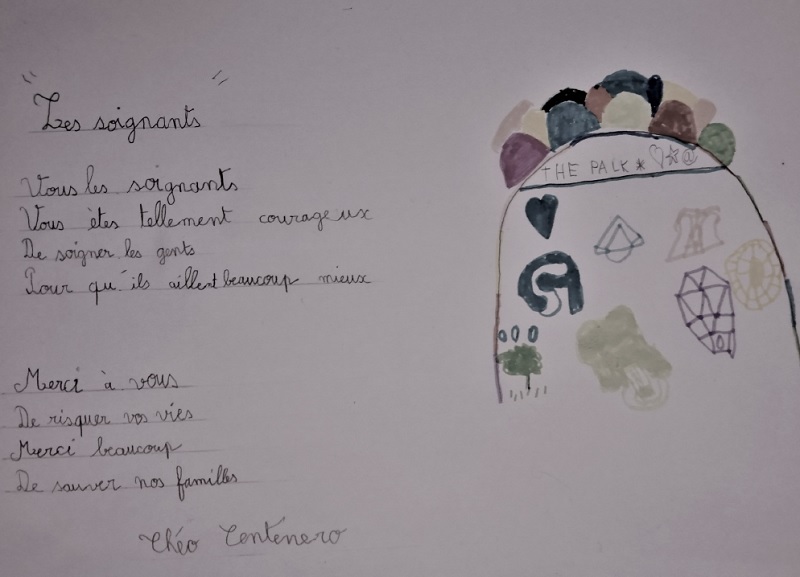 "Les soignants"
Vous les soignants
Vous êtes tellement courageux
De soigner les gents
Pour qu'ils aillent beaucoup mieux
Merci à vous
De risquer vos vies
Merci beaucoup
De sauver nos familles
Théo Centenero
THE PALK *